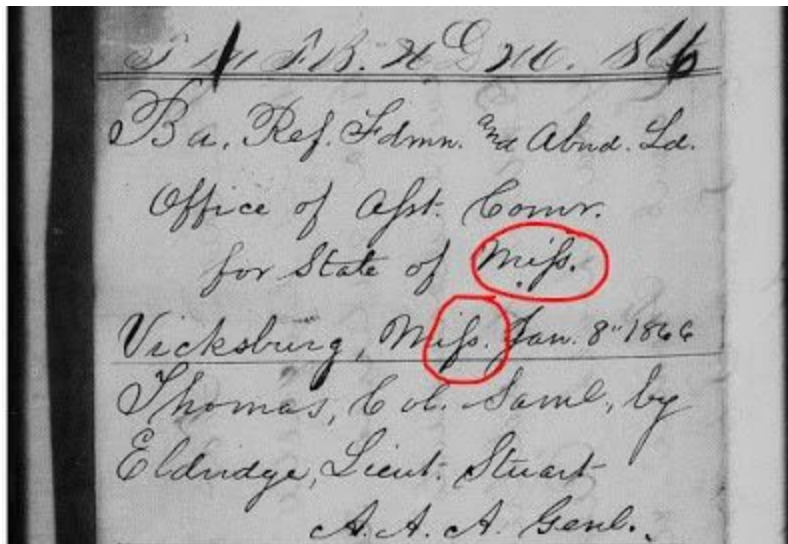 1866
Ba. Ref. Fdmn. and Abnd. Ld.
Office of Asst. Comr.
for State of Miss.
Vicksburg, Miss. Jan. 8" 1866
Thomas, Col. Saml, by
Eldridge, Lieut. Stuart
A. A. A. Genl.